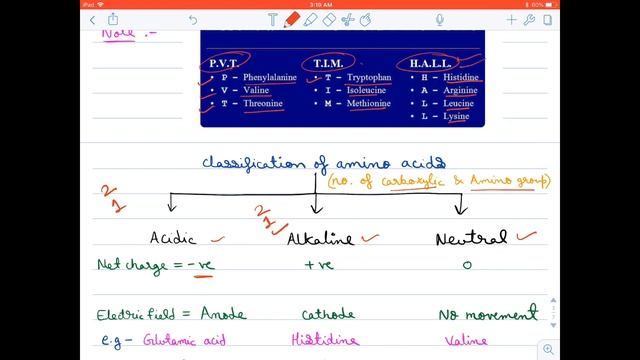 iPad
3:19 AM
60%
Note :-
P.V.T. T.I.M. H.A.L.L.
• P – Phenylalanine • T – Tryptophan • H – Histidine
• V – Valine • I – Isoleucine • A – Arginine
• T – Threonine • M – Methionine • L – Leucine
• L – Lysine
classification of amino acids
(no. of carboxylic & Amino group)
2 2
1 1
Acidic Alkaline Neutral
Net charge = -ve +ve 0
Electric field = Anode cathode No movement
e.g - Glutamic acid Histidine Valine